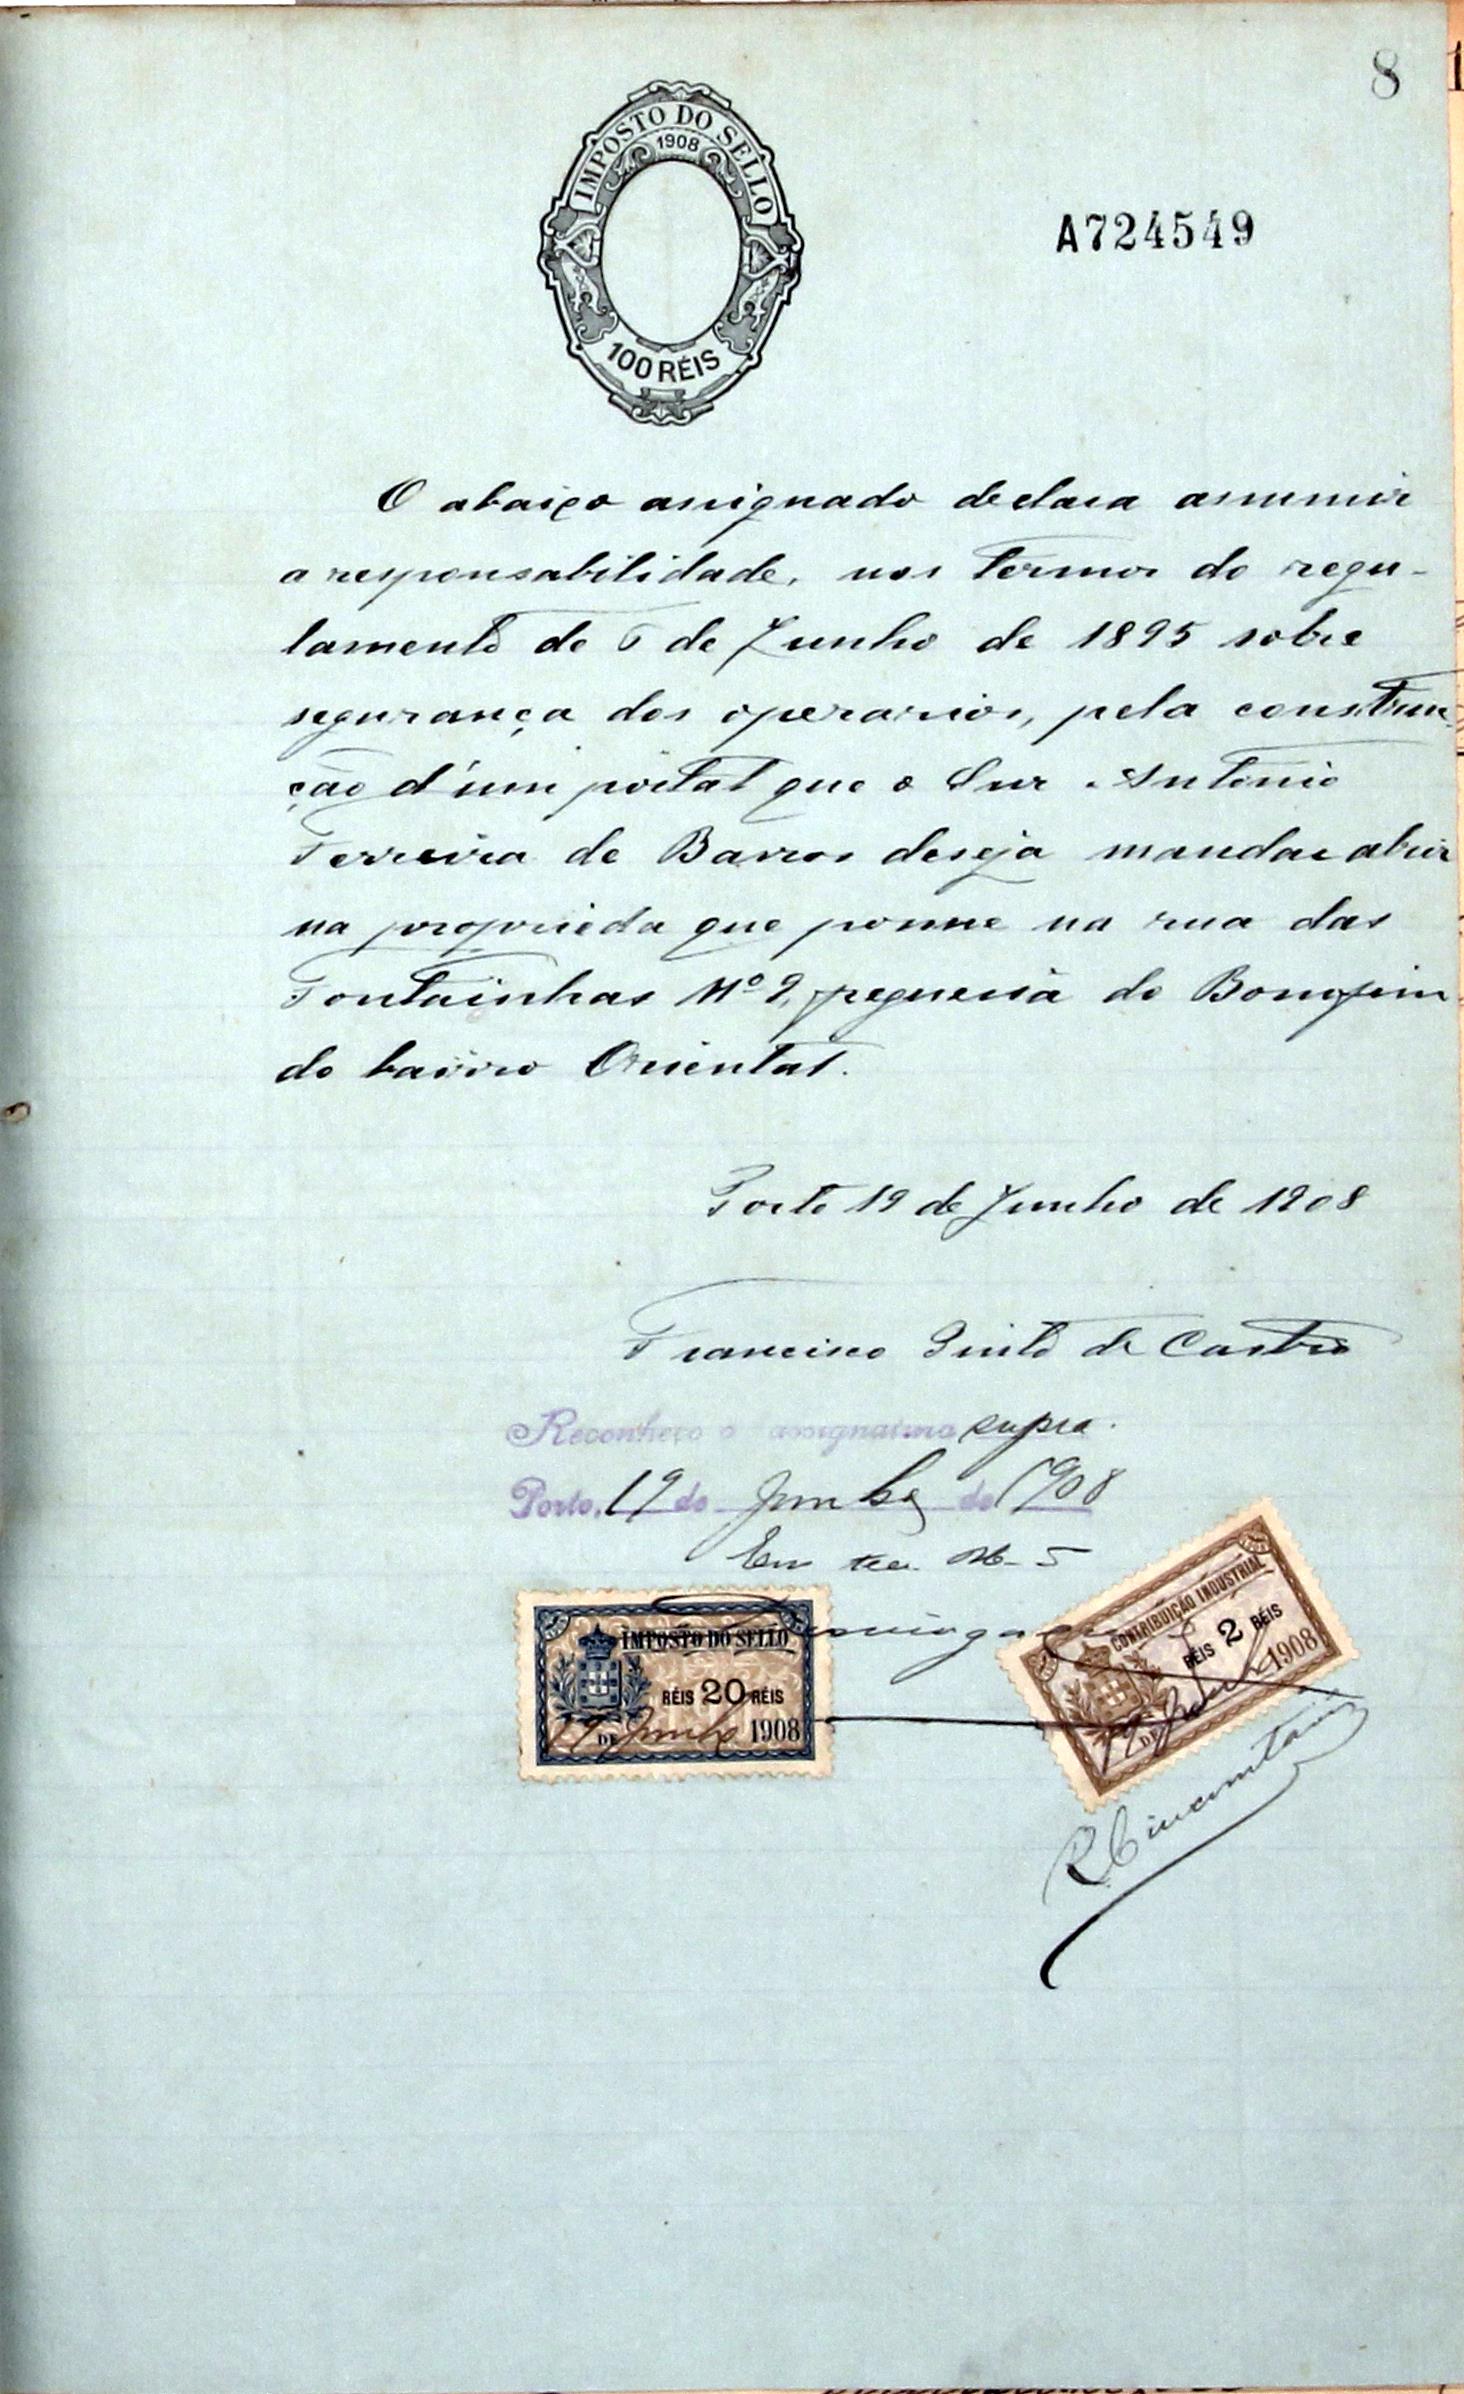 8
IMPOSTO DO SELLO
1908
100 RÉIS
A724549
O abaixo assignado declara assumir
a responsabilidade, nos termos do regu-
lamento de 6 de Junho de 1895 sobre
segurança dos operarios, pela constru-
ção d'um portal que o Snr. Antonio
Ferreira de Barros deseja mandar abrir
na proprieda que possue na rua das
Fontainhas Nº 9, freguesia do Bomfim
do bairro Oriental.
Porto 19 de Junho de 1908
Francisco Pinto de Castro
Reconheço a assignatura supra.
Porto, 19 de Junho de 1908
Em
IMPOSTO DO SELLO
RÉIS 20 RÉIS
19 DE Junho 1908
CONTRIBUIÇÃO INDUSTRIAL
RÉIS 2 RÉIS
19 DE Junho 1908